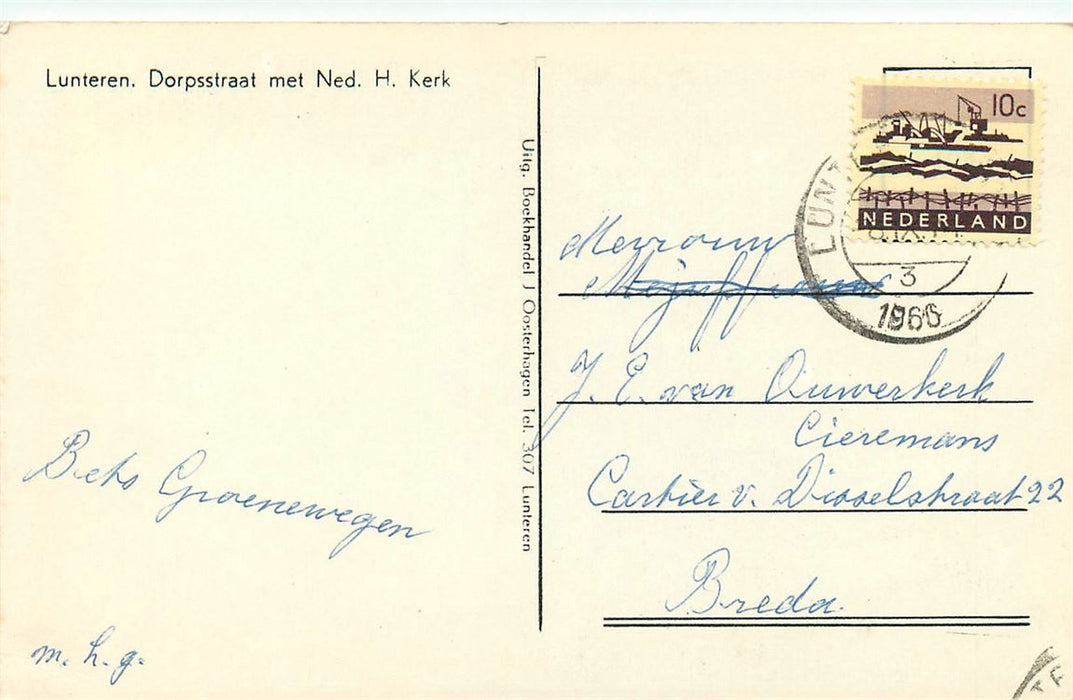 Lunteren. Dorpsstraat met Ned. H. Kerk
Uitg. Boekhandel J Oosterhagen Tel. 307 Lunteren
10c
NEDERLAND
LUNT
3
1966
Mevrouw
Mejuffrouw
J. E. van Ouwerkerk
Cieremans
Cartier v. Disselstraat 22
Breda.
Bets Groenewegen
m. h. g.